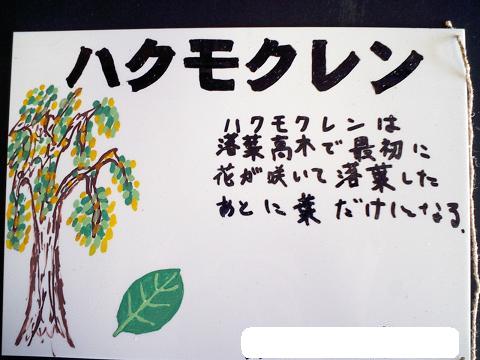 ハクモクレン
ハクモクレンは
落葉高木で最初に
花が咲いて落葉した
あとに葉だけになる.